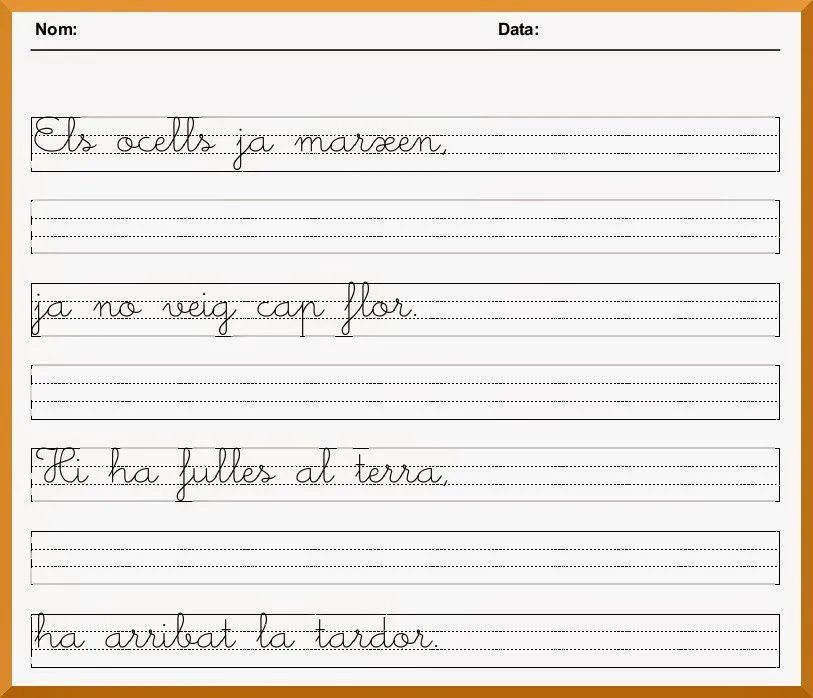 Nom: Data:
Els ocells ja marxen,
ja no veig cap flor.
Hi ha fulles al terra,
ha arribat la tardor.